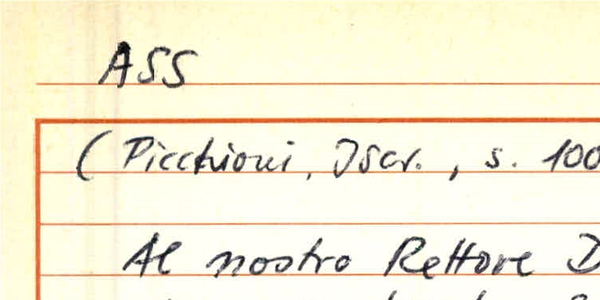 ASS
(Picchioni, Iscr., s. 100
Al nostro Rettore D